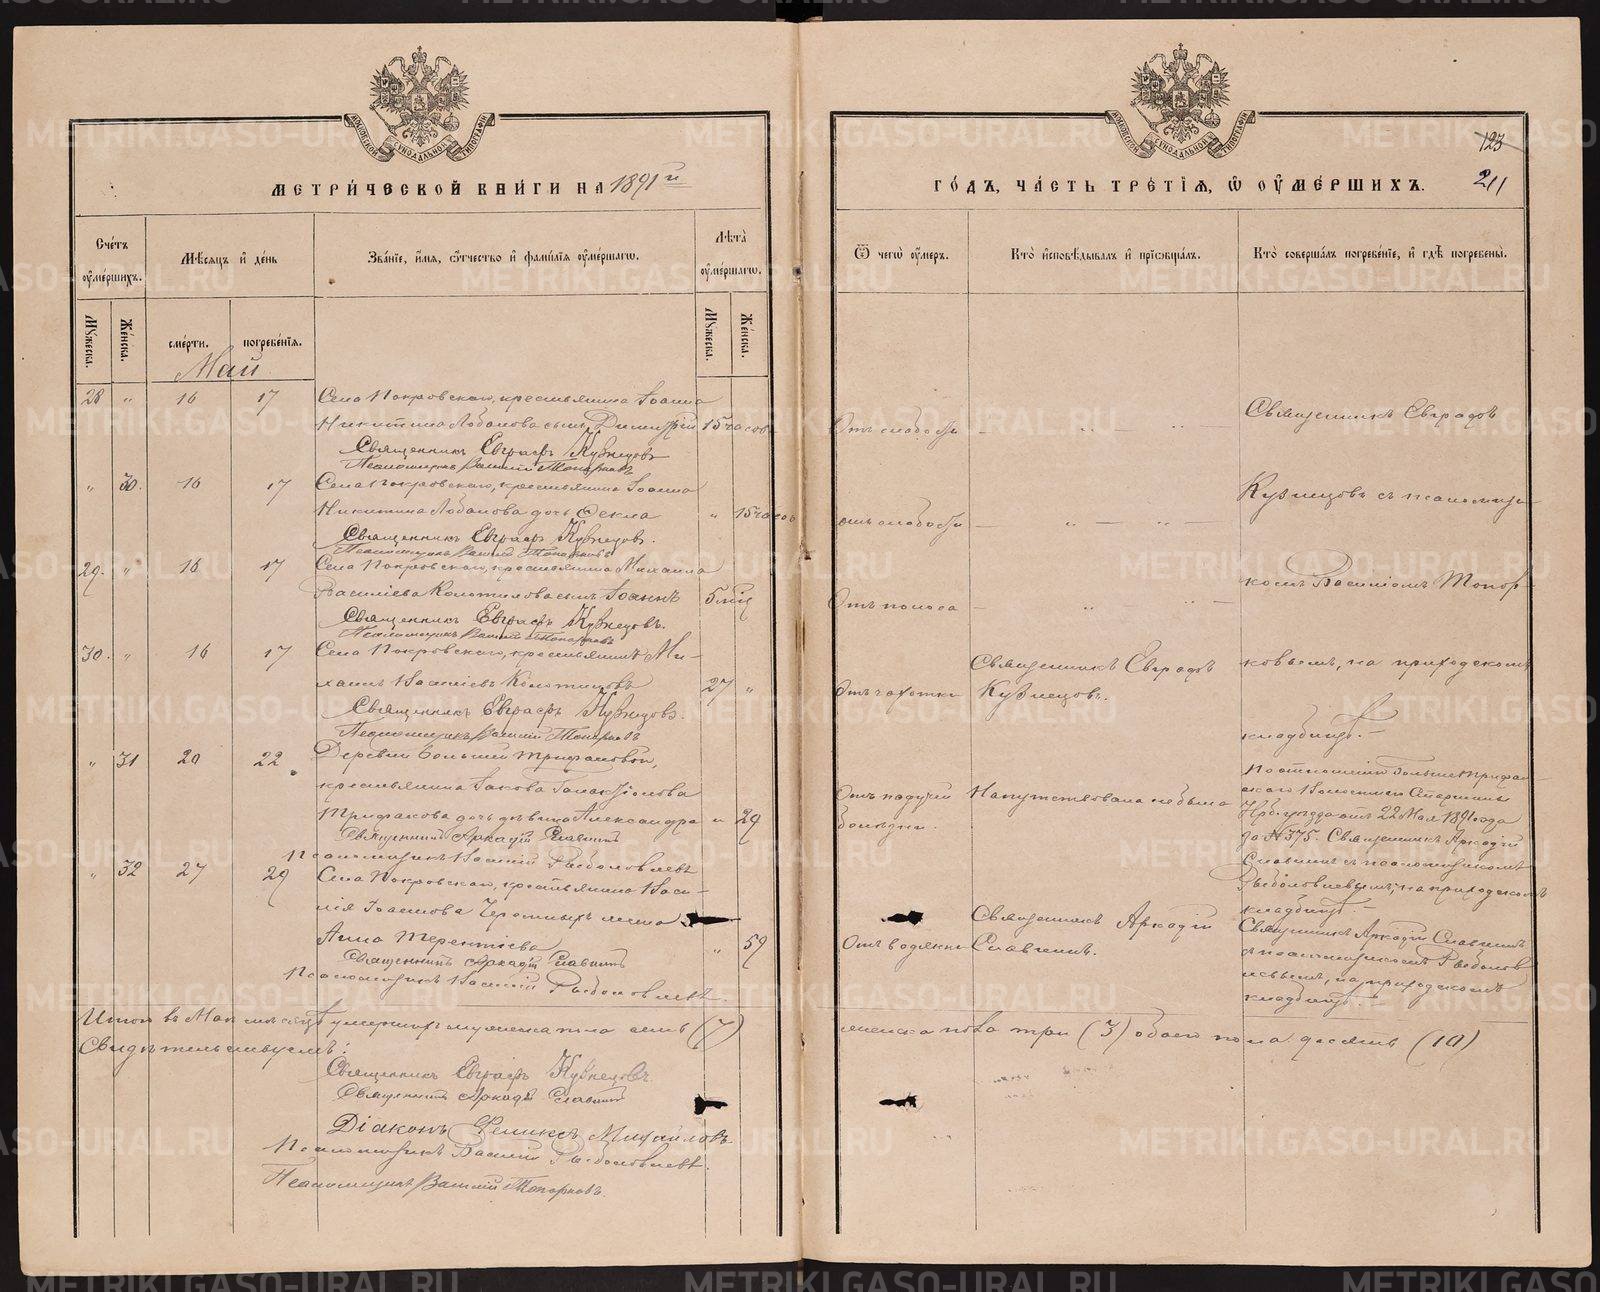 МОСКОВСКОЙ СѴНОДАЛЬНОЙ ТИПОГРАФІИ
МЕТРИ́ЧЕСКОЙ КНИ́ГИ НА 1891 й
Сче́тъ ᲂу҆ме́ршихъ.
Мѣ́сяцъ и҆ де́нь
Зва́нїе, и҆́мя, ѻ҆́тчество и҆ фами́лїя ᲂу҆ме́ршагѡ.
Лѣ́та ᲂу҆ме́ршагѡ.
Мꙋ́жеска.
Же́нска.
сме́рти.
погребе́нїя.
Мꙋ́жеска.
Же́нска.
Май
28 " 16 17 Села Покровскаго, крестьянина Іоанна
Никитина Лобанова сынъ Димитрій 15 часов
Священникъ Евграфъ Кузнецовъ
Псаломщикъ Василій Топорковъ
" 30. 16 17 Села Покровскаго, крестьянина Іоанна
Никитина Лобанова дочь Фекла " 15 часов
Священникъ Евграфъ Кузнецовъ.
Псаломщикъ Василій Топорковъ
29. " 16 17 Села Покровскаго, крестьянина Михаила
Василіева Колотилова сынъ Іоаннъ 5 мѣц
Священникъ Евграфъ Кузнецовъ.
Псаломщикъ Василій Топорковъ
30. " 16 17 Села Покровскаго, крестьянинъ Ми-
хаилъ Василіевъ Колотиловъ 27 "
Священникъ Евграфъ Кузнецовъ.
Псаломщикъ Василій Топорковъ
" 31 20 22 Деревни Большой Трифановой,
крестьянина Іакова
Трифанова дочь дѣвица Александра " 29
Священникъ Аркадій Славнинъ
Псаломщикъ Василій Рыболовлевъ
" 32 27 29 Села Покровскаго, крестьянина Васи-
лія Іоаннова Черемныхъ жена
Анна Терентіева " 59
Священникъ Аркадій Славнинъ
Псаломщикъ Василій Рыболовлевъ.
Итого въ Маѣ мѣсяцѣ умершихъ мужеска пола семь (7)
Свидѣтельствуемъ:
Священникъ Евграфъ Кузнецовъ.
Священникъ Аркадій Славнинъ
Діаконъ Феликсъ Михайловъ
Псаломщикъ Василій Рыболовлевъ.
Псаломщикъ Василій Топорковъ.
МОСКОВСКОЙ СѴНОДАЛЬНОЙ ТИПОГРАФІИ
123
ГО́ДЪ, ЧА́СТЬ ТРЕ́ТЇѦ, Ѡ҆ ОУ҆МЕ́РШИХЪ.
211
Ѿ чегѡ̀ ᲂу҆́меръ.
Кто̀ и҆сповѣ́дывалъ и҆ прїѻбща́лъ.
Кто̀ соверша́лъ погребе́нїе, и҆ гдѣ̀ погребены̀.
Священникъ Евграфъ
Отъ слабости — " — "
Кузнецовъ съ псаломщи-
отъ слабости — " — "
комъ Василіемъ Топор-
Отъ поноса — " — "
Священникъ Евграфъ
ковымъ, на приходскомъ
Отъ чахотки
Кузнецовъ.
кладбищѣ.
Отъ падучей
болѣзни.
Напутствована не была
По отношенію Больше Трифан-
скаго Волостнаго Старшины
Ирб. уѣзда отъ 22 Мая 1891 года
за № 375. Священникъ Аркадій
Славнинъ съ псаломщикомъ
Рыболовлевымъ, на приходскомъ
кладбищѣ.
Отъ водянки
Священникъ Аркадій
Славнинъ.
Священникъ Аркадій Славнинъ
съ псаломщикомъ Рыболов-
левымъ, на приходскомъ
кладбищѣ.
женска пола три (3) обоего пола десять (10)
METRIKI.GASO-URAL.RU